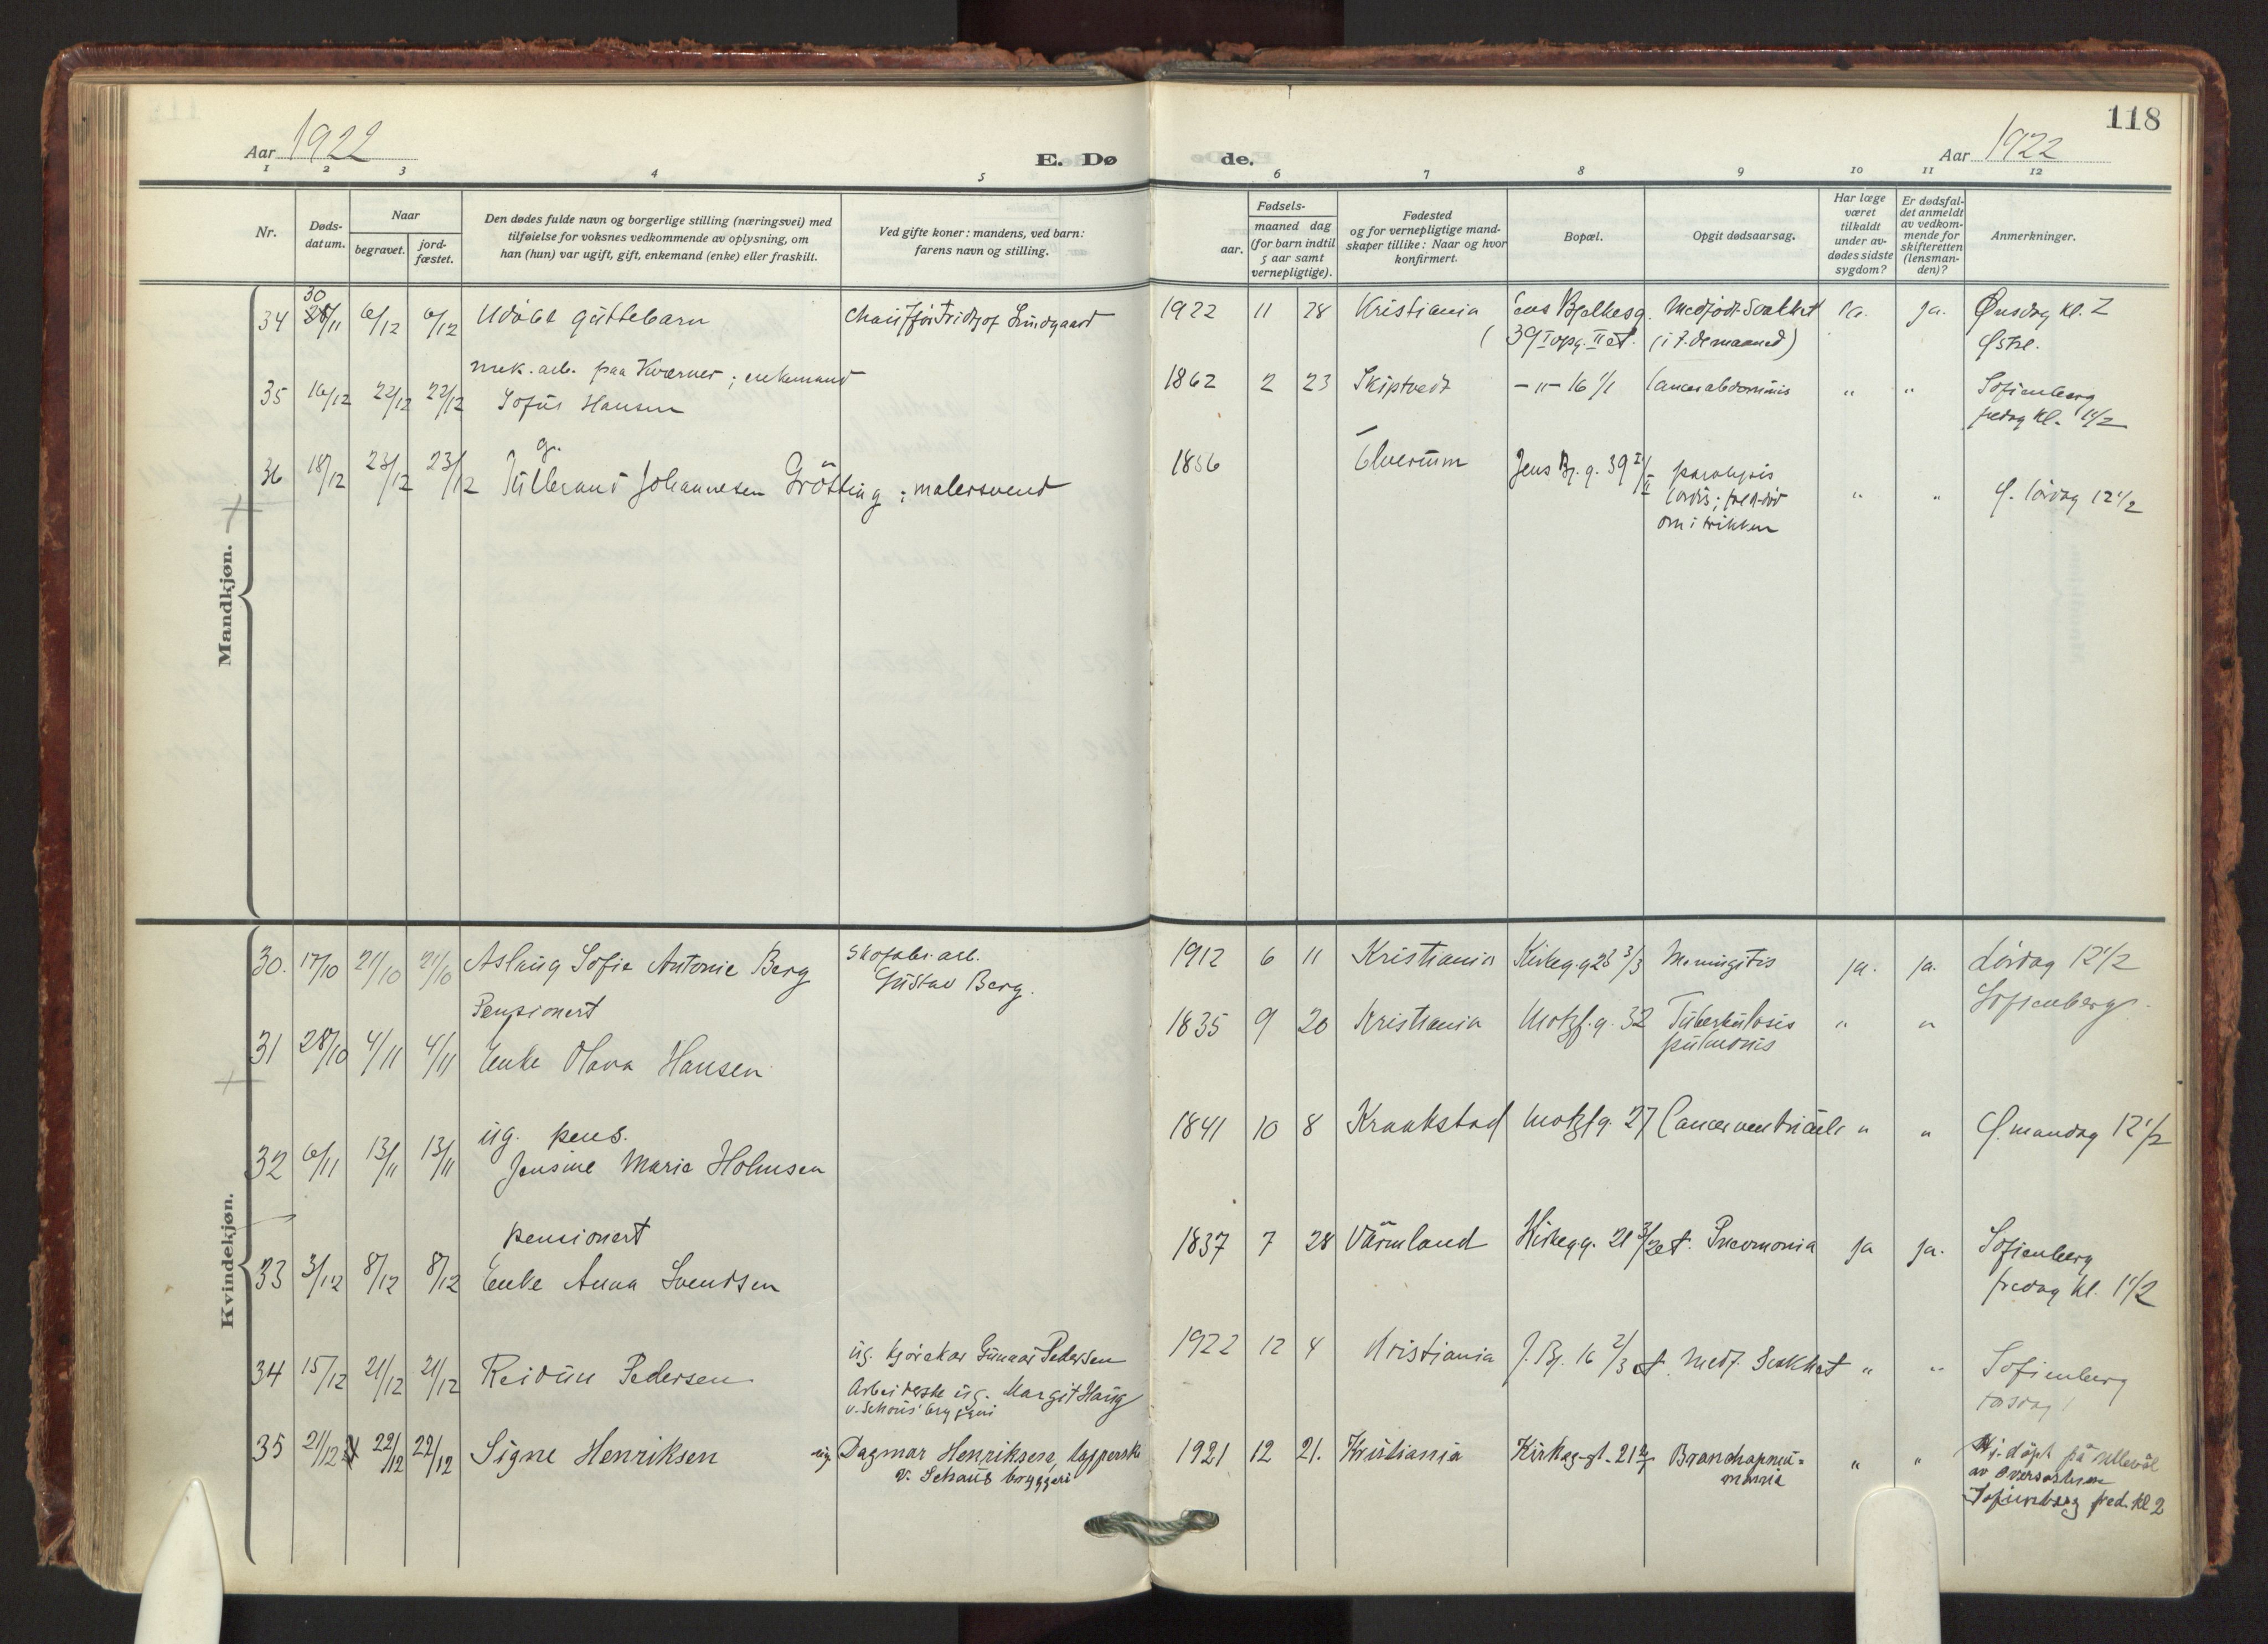 118
Aar 1922
E. Dø
de.
Aar 1922
1 2 3 4 5 6 7 8 9 10 11 12
Nr.
Døds-
datum.
Naar
begravet.
jord-
fæstet.
Den dødes fulde navn og borgerlige stilling (næringsvei) med
tilføielse for voksnes vedkommende av oplysning, om
han (hun) var ugift, gift, enkemand (enke) eller fraskilt.
Ved gifte koner: mandens, ved barn:
farens navn og stilling.
Fødsels-
aar.
maaned dag
(for barn indtil
5 aar samt
vernepligtige).
Fødested
og for vernepligtige mand-
skaper tillike: Naar og hvor
konfirmert.
Bopæl.
Opgit dødsaarsag.
Har læge
været
tilkaldt
under av-
dødes sidste
sygdom?
Er dødsfal-
det anmeldt
av vedkom-
mende for
skifteretten
(lensman-
den)?
Anmerkninger.
Mandkjøn.
30
34 28/11 6/12 6/12 Udøbt guttebarn Chauffør Fridtjof Lundgaard 1922 11 28 Kristiania Jens Bjelkesg. Medfødt svakhet ja. ja. Onsdag kl. 2
39 I opg. II et. (i 7. de maaned) Østre.
mek. arb. paa Kværner; enkemand
35 16/12 22/12 22/12 Sofus Hansen 1862 2 23 Skiptvedt -"- 16 1/1 Cancer abdominis " " Sofienberg
fredag kl. 1 1/2
g.
36 18/12 23/12 23/12 Gulbrand Johannesen Grøtting; malersvend 1856 Elverum Jens Bj. g. 39 I/II paralysis
cordis; faldt død " " Ø. lørdag 12 1/2
om i trikken
Kvindekjøn.
30. 17/10 21/10 21/10 Aslaug Sofie Antonie Berg Skofabr. arb. 1912 6 11 Kristiania Kirkeg.g 28 3/3 Meningitis ja. ja. Lørdag 12 1/2
Gustav Berg. Sofienberg.
Pensionert
31 28/10 4/11 4/11 Enke Olava Hansen 1835 9 20 Kristiania Motzf. g. 32 Tuberkulosis " "
pulmonis
ug. pens.
32 6/11 13/11 13/11 Jensine Marie Holmsen 1841 10 8 Kraakstad Motzfg. 27 Cancer ventriculi " " Ø. mandag 12 1/2
pensionert
33 3/12 8/12 8/12 Enke Anna Svendsen 1837 7 28 Värmland Kirkeg.g. 21 3/2 et. Pneumonia ja ja. Sofienberg
fredag kl. 1 1/2
34 15/12 21/12 21/12 Reidun Pedersen ug. kjørekar Gunnar Pedersen 1922 12 4 Kristiania J. Bj. 16 2/3 et. Medf. Svakhet " " Sofienberg
Arbeiderske ug. Margit Haug torsdag 1
v. Schous' bryggeri
35 21/12 22/12 22/12 Signe Henriksen ug. Dagmar Henriksen, tapperske 1921 12 21. Kristiania Kirkeg-gt. 21 Bronchopneu= " " Hj. døpt på Ullevål
v. Schous bryggeri monia av oversøsteren
Sofienberg fred. kl 2